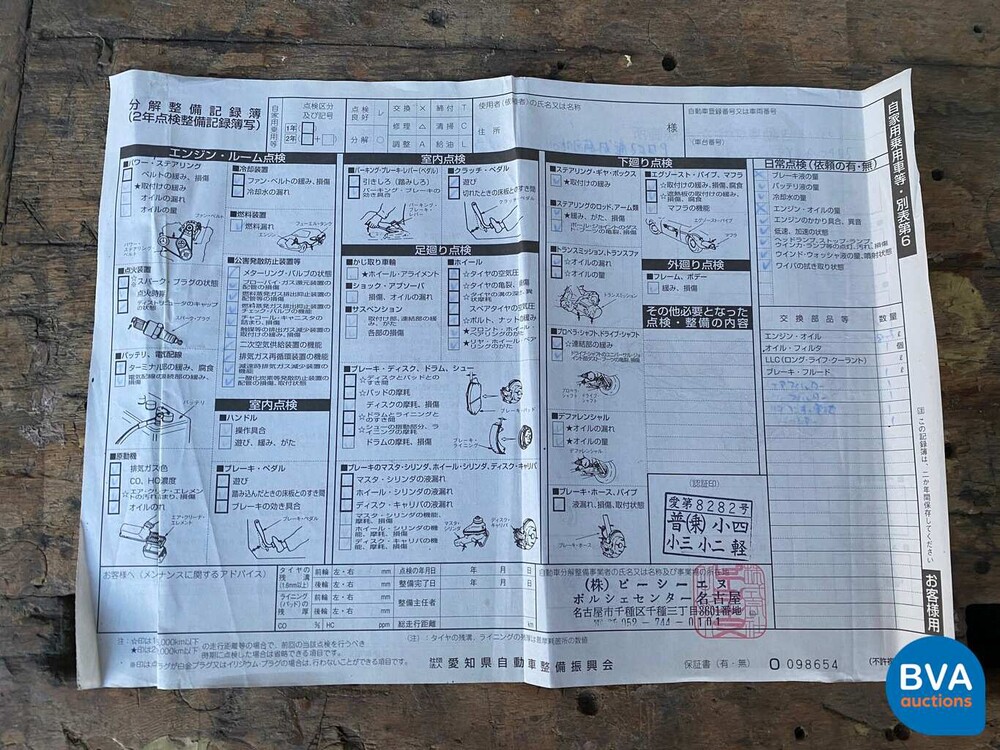 分解整備記録簿
(2年点検整備記録簿写)
自家用乗用等
点検区分
及び記号
1年
2年
点検
良好 レ
交換 × 締付 T
修理 △ 清掃 C
分解 ○
調整 A 給油 L
使用者(依頼者)の氏名又は名称
様
住所
自動車登録番号又は車両番号
(車台番号)
自家用乗用車等・別表第6
エンジン・ルーム点検
■パワー・ステアリング
ベルトの緩み、損傷
★取付けの緩み
オイルの漏れ
オイルの量
ファン・ベルト
パワー・
ステアリング・
ベルト
■点火装置
☆スパーク・プラグの状態
点火時期
ディストリビュータのキャップ
の状態
スパーク・プラグ
■バッテリ、電気配線
ターミナル部の緩み、腐食
電気配線の接続部の緩み、
損傷
バッテリ
■原動機
排気ガス色
CO、HC濃度
☆エア・クリーナ・エレメン
トの汚れ、詰まり、損傷
オイルの漏れ
エア・クリーナ・
エレメント
■冷却装置
ファン・ベルトの緩み、損傷
冷却水の漏れ
■燃料装置
燃料漏れ
フューエル・タンク
エンジン
■公害発散防止装置等
メターリング・バルブの状態
ブローバイ・ガス還元装置の
配管の損傷
燃料蒸発ガス排出抑止装置の
配管等の損傷
燃料蒸発ガス排出抑止装置の
チェック・バルブの機能
チャコール・キャニスタの
詰まり、損傷
触媒等の排出ガス減少装置の
取付けの緩み、損傷
二次空気供給装置の機能
排気ガス再循環装置の機能
減速時排気ガス減少装置の
機能
一酸化炭素等発散防止装置の
配管の損傷、取付状態
室内点検
■ハンドル
操作具合
遊び、緩み、がた
■ブレーキ・ペダル
遊び
踏み込んだときの床板とのすき間
ブレーキの効き具合
ブレーキ・ペダル
室内点検
■パーキング・ブレーキ・レバー(ペダル)
引きしろ(踏みしろ)
パーキング・ブレーキの
効き具合
パーキング・
ブレーキ・
レバー
■クラッチ・ペダル
遊び
切れたときの床板とのすき間
クラッチ・ペダル
足廻り点検
■かじ取り車輪
★ホイール・アライメント
■ショック・アブソーバ
損傷、オイルの漏れ
■サスペンション
取付部、連結部の緩
み、がた
各部の損傷
■ホイール
☆タイヤの空気圧
☆タイヤの亀裂、損傷
☆タイヤの溝の深さ、異
状摩耗
スペアタイヤの空気圧
☆ボルト、ナットの緩み
★フロント・ホイール・
ベアリングのがた
★リヤ・ホイール・ベア
リングのがた
■ブレーキ・ディスク、ドラム、シュー
☆ディスクとパッドとの
すき間
☆パッドの摩耗
ディスクの摩耗、損傷
☆ドラムとライニングと
のすき間
☆シューの摺動部分、ラ
イニングの摩耗
ドラムの摩耗、損傷
ブレーキ・パッド
ブレーキ・
ライニング
■ブレーキのマスタ・シリンダ、ホイール・シリンダ、ディスク・キャリパ
マスタ・シリンダの液漏れ
ホイール・シリンダの液漏れ
ディスク・キャリパの液漏れ
マスタ・シリンダの機能、
摩耗、損傷
ホイール・シリンダの機能、
摩耗、損傷
ディスク・キャリパの機能、
摩耗、損傷
マスタ・
シリンダ
ディスク・
キャリパ
下廻り点検
■ステアリング・ギヤ・ボックス
★取付けの緩み
■ステアリングのロッド、アーム類
★緩み、がた、損傷
ボール・ジョイントのダス
ト・ブーツの亀裂、損傷
■トランスミッション、トランスファ
☆オイルの漏れ
☆オイルの量
トランスミッション
■プロペラ・シャフト、ドライブ・シャフト
☆連結部の緩み
ドライブ・シャフトのユニバーサル・ジョ
イント部のダスト・ブーツの亀裂、損傷
プロペラ・
シャフト
ドライブ・
シャフト
■デファレンシャル
☆オイルの漏れ
☆オイルの量
デファレンシャル
■ブレーキ・ホース、パイプ
液漏れ、損傷、取付状態
ブレーキ・ホース
■エグゾースト・パイプ、マフラ
☆取付けの緩み、損傷、腐食
☆遮熱板の取付けの緩み、
損傷、腐食
マフラの機能
エグゾースト・パイプ
マフラ
外廻り点検
■フレーム、ボデー
緩み、損傷
その他必要となった
点検・整備の内容
日常点検(依頼の有・無)
ブレーキ液の量
バッテリ液の量
冷却水の量
エンジン・オイルの量
エンジンのかかり具合、異音
低速、加速の状態
ヘッドランプ、ストップ・ランプ、
ウインカ・ランプ等の点灯、汚れ、損傷
ウインド・ウォッシャ液の量、噴射状態
ワイパの拭き取り状態
交換部品等 数量
エンジン・オイル ℓ
オイル・フィルタ
LLC(ロング・ライフ・クーラント) ℓ
ブレーキ・フルード ℓ
(注)この記録簿は、二か年間保存してください
お客様用
(認証印)
愛第8282号
普(乗)小四
小三 小二 軽
お客様へ(メンテナンスに関するアドバイス)
タイヤの残溝(1.6mm以上)
前輪 左・右 mm
後輪 左・右 mm
ライニング(パッド)の残厚
前輪 左・右 mm
後輪 左・右 mm
CO % HC ppm
点検の年月日 年 月 日
整備完了日 年 月 日
整備主任者
総走行距離 km
自動車分解整備事業者の氏名又は名称及び事業場の所在地
(株)ピーシーエヌ
ポルシェセンター名古屋
名古屋市千種区千種三丁目3801番地
052-744-0101
(注):タイヤの残溝、ライニングの残厚は最摩耗箇所の数値
の走行距離等の場合で、前回の当該点検を行うべき
時期に点検した場合は省略できる項目です。
※印はプラグが白金プラグ又はイリジウム・プラグの場合は、行わないことができる項目です。
社団法人 愛知県自動車整備振興会
保証書(有・無)
O 098654
BVA
auctions